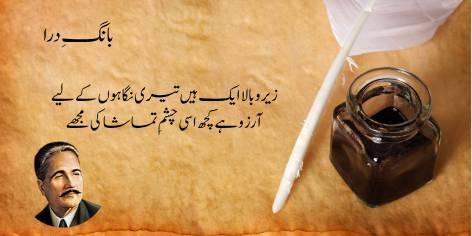 بانگِ درا
زیر و بالا ایک ہیں تیری نگاہوں کے لیے
آرزو ہے کچھ اسی چشمِ تماشا کی مجھے